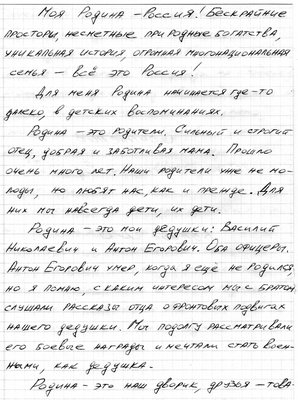 Моя Родина – Россия! Бескрайние
просторы, несметные природные богатства,
уникальная история, огромная многонациональная
семья – всё это Россия!
Для меня Родина начинается где-то
далеко, в детских воспоминаниях.
Родина – это родители. Сильный и строгий
отец, добрая и заботливая мама. Прошло
очень много лет. Наши родители уже не мо-
лоды, но любят нас, как и прежде. Для
них мы навсегда дети, их дети.
Родина – это мои дедушки: Василий
Николаевич и Антон Егорович. Оба офицеры.
Антон Егорович умер, когда я ещё не родился,
но я помню с каким интересом мы с братом
слушали рассказы отца о фронтовых подвигах
нашего дедушки. Мы подолгу рассматривали
его боевые награды и мечтали стать воен-
ными, как дедушка.
Родина – это наш дворик, друзья – това-